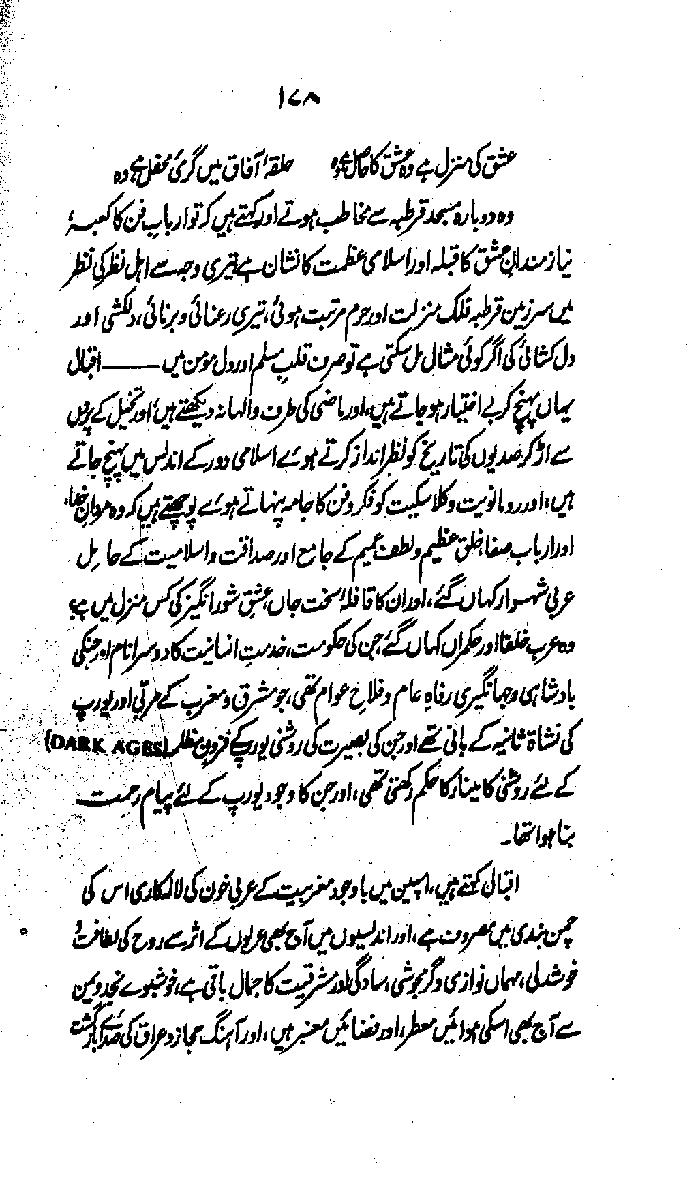 ۱۷۸
عشق کی منزل ہے وہ عشق کا حاصل ہے وہ حلقۂ آفاق میں گرمئ محفل ہے وہ
وہ دوبارہ مسجد قرطبہ سے مخاطب ہوتے اور کہتے ہیں کہ تو اربابِ فن کا کعبہ
نیاز مندانِ عشق کا قبلہ اور اسلامی عظمت کا نشان ہے تیری وجہ سے اہل نظر کی نظر
میں سرزمین قرطبہ فلک منزلت اور حرم مرتبت ہوئی، تیری رعنائی و برنائی، دلکشی اور
دل کشائی کی اگر کوئی مثال مل سکتی ہے تو صرف قلبِ مسلم اور دل مومن میں ــــــ اقبال
یہاں پہنچ کر بے اختیار ہو جاتے ہیں، اور ماضی کی طرف والہانہ دیکھتے ہیں اور تخیل کے پروں
سے اڑ کر صدیوں کی تاریخ کو نظر انداز کرتے ہوئے اسلامی دور کے اندلس میں پہنچ جاتے
ہیں، اور رومانویت و کلاسکیت کو فکر و فن کا جامہ پہناتے ہوئے پوچھتے ہیں کہ وہ مردانِ خدا،
اور ارباب صفا خلق عظیم و لطف عمیم کے جامع اور صداقت و اسلامیت کے حامل
عربی شہسوار کہاں گئے، اور ان کا قافلۂ سخت جاں، عشق شور انگیز کی کس منزل میں ہے
وہ عرب خلفا اور حکمراں کہاں گئے جن کی حکومت، خدمتِ انسانیت کا دوسرا نام اور جنکی
بادشاہی و جہانگیری رفاہِ عام و فلاحِ عوام تھی، جو مشرق و مغرب کے مربّی اور یورپ
کی نشاۃ ثانیہ کے بانی تھے اور جن کی بصیرت کی روشنی یورپ کے قرونِ مظلمہ (DARK AGES)
کے لئے روشنی کا مینار کا حکم رکھتی تھی، اور جن کا وجود یورپ کے لئے پیام رحمت
بنا ہوا تھا۔
اقبال کہتے ہیں، اسپین میں باوجود مغربیت کے عربی خون کی لالہ کاری اس کی
چمن بندی میں مصروف ہے، اور اندلسیوں میں آج بھی عربوں کے اثر سے روح کی لطافت و
خوشدلی، مہماں نوازی و گرمجوشی، سادگی اور مشرقیت کا جمال باقی ہے، خوشبوئے نجد و یمن
سے آج بھی اسکی ہوائیں معطر، اور فضائیں معنبر ہیں، اور آہنگ حجاز و عراق کی صدائے بازگشت